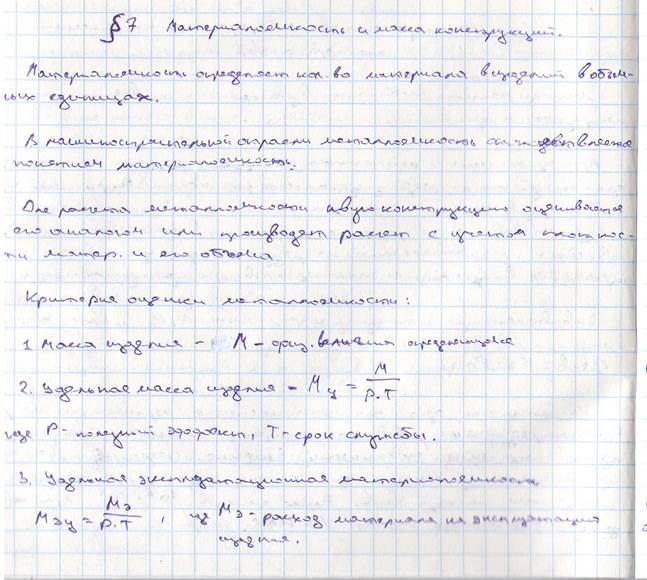 § 7 Материалоемкость и масса конструкций.
Материалоемкость определяет кол-во материала в изделии в объем-
ных единицах.
В машиностроительной отрасли металлоемкость отождествляется
понятием материалоемкость.
Для расчета металлоемкости новую конструкцию оценивается
его аналогом или производят расчет с учетом плотнос-
ти матер. и его объема.
Критерия оценки металлоемкости:
1 Масса изделия - М - физ. величина определяющаяся
2. Удельная масса изделия - Mу = M / P.T
где P - полезный эффект, T - срок службы.
3. Удельная эксплуатационная материалоемкость
Mэу = Mэ / P.T , где Mэ - расход материала на эксплуатацию
изделия.